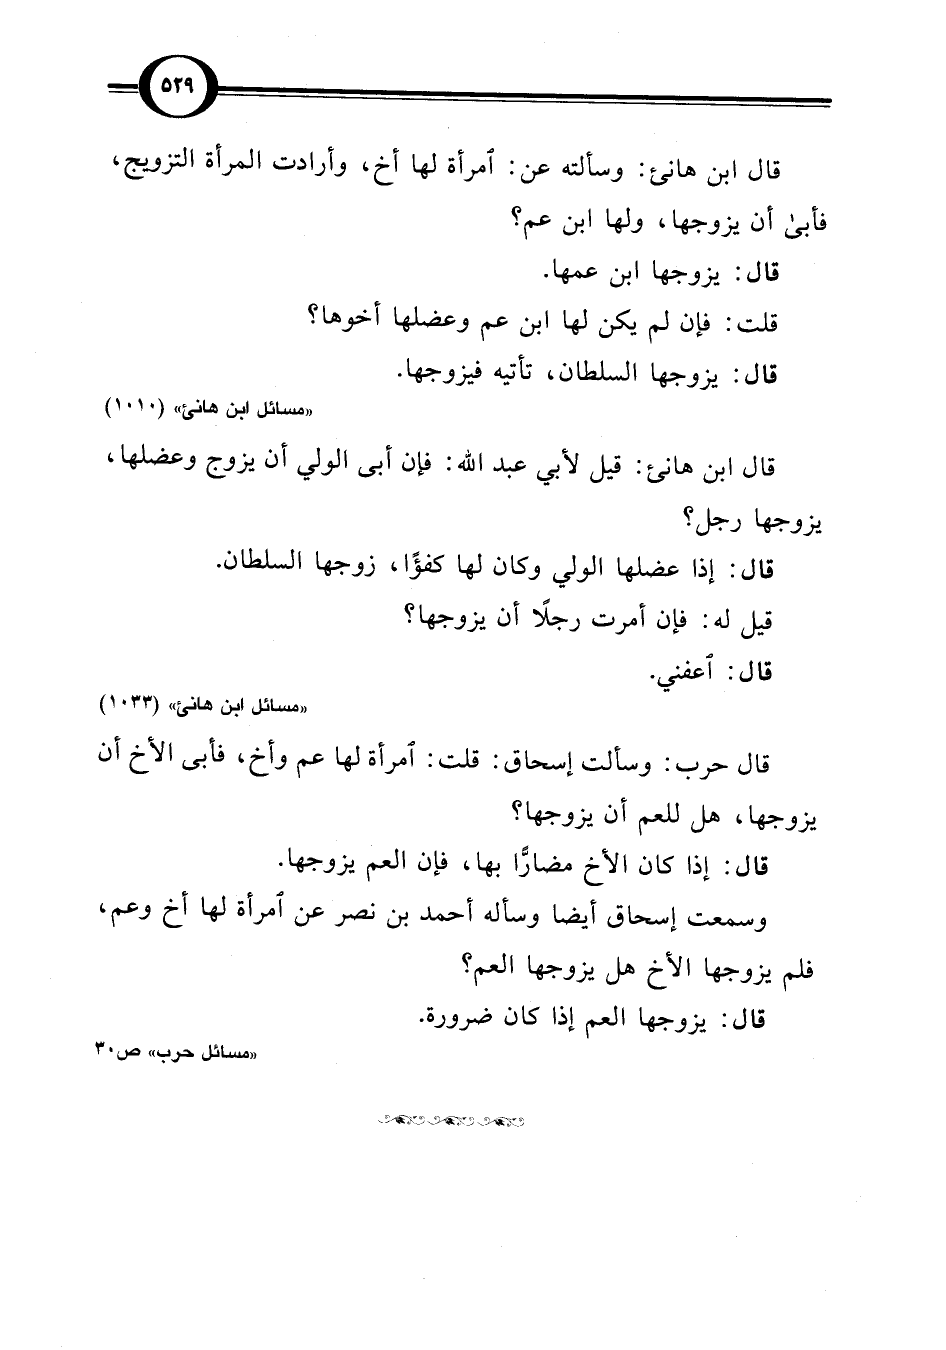 ٥٢٩
قال ابن هانئ: وسألته عن: ٱمرأة لها أخ، وأرادت المرأة التزويج،
فأبىٰ أن يزوجها، ولها ابن عم؟
قال: يزوجها ابن عمها.
قلت: فإن لم يكن لها ابن عم وعضلها أخوها؟
قال: يزوجها السلطان، تأتيه فيزوجها.
«مسائل ابن هانئ» (١٠١٠)
قال ابن هانئ: قيل لأبي عبد الله: فإن أبى الولي أن يزوج وعضلها،
يزوجها رجل؟
قال: إذا عضلها الولي وكان لها كفؤًا، زوجها السلطان.
قيل له: فإن أمرت رجلًا أن يزوجها؟
قال: ٱعفني.
«مسائل ابن هانئ» (١٠٣٣)
قال حرب: وسألت إسحاق: قلت: ٱمرأة لها عم وأخ، فأبى الأخ أن
يزوجها، هل للعم أن يزوجها؟
قال: إذا كان الأخ مضارًّا بها، فإن العم يزوجها.
وسمعت إسحاق أيضا وسأله أحمد بن نصر عن ٱمرأة لها أخ وعم،
فلم يزوجها الأخ هل يزوجها العم؟
قال: يزوجها العم إذا كان ضرورة.
«مسائل حرب» ص٣٠